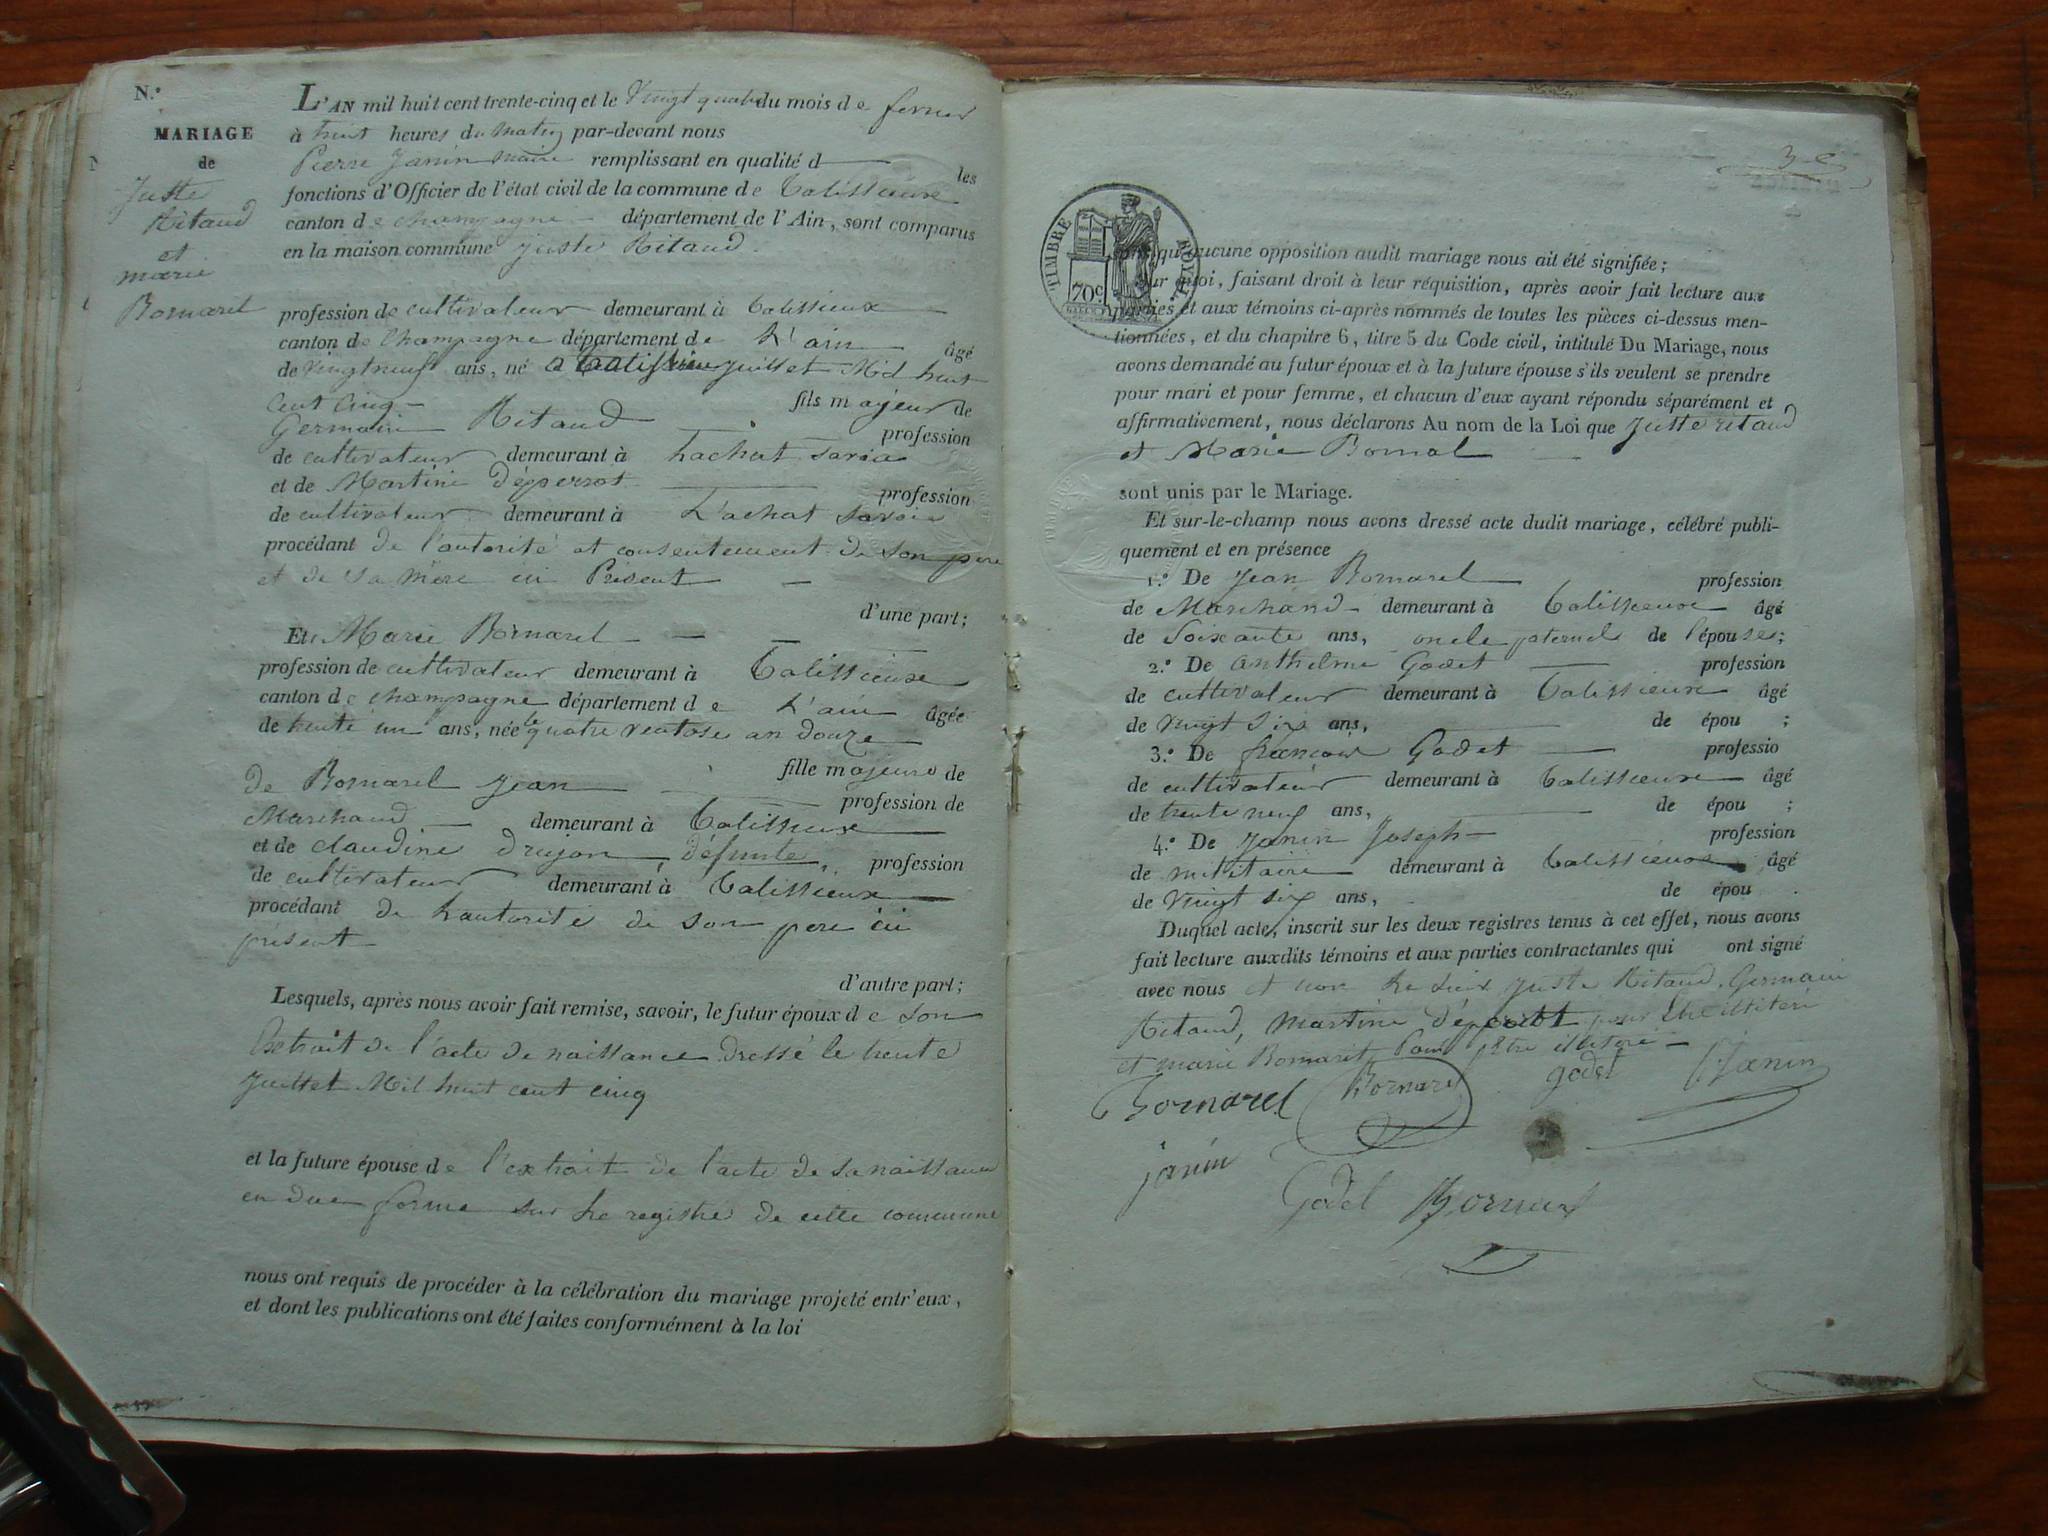 N.º
MARIAGE
de
Juste
Ritaud
et
marie
Bornarel
L'AN mil huit cent trente-cinq et le Vingt quatre du mois de fevrier
à huit heures du Matin par-devant nous
Pierre Janin maire remplissant en qualité d les
fonctions d'Officier de l'état civil de la commune de Talissieux
canton de champagne département de l'Ain, sont comparus
en la maison commune juste Ritaud
profession de cultivateur demeurant à Talissieux
canton de Champagne département de L'ain âgé
de Vingt neuf ans, né a Talissieu juillet Mil huit
cent cinq fils mayeur de
Germain Ritaud profession
de cultivateur demeurant à Lachat
et de Martine déperrot profession
de cultivateur demeurant à L'achat savoie
procédant de l'autorité et consentement de son pere
et de sa mère ici Présent
d'une part;
Et Marie Bornarel
profession de cultivateur demeurant à Talissieux
canton de champagne département de L'ain âgée
de trente un ans, née le quatre ventose an douze
fille majeure de
de Bornarel jean profession de
Marchand demeurant à Talissieux
et de claudine drujon, défunte, profession
de cultivateur demeurant à Talissieux
procédant de Lautorité de son pere ici
présent
d'autre part;
Lesquels, après nous avoir fait remise, savoir, le futur époux de son
Extrait de l'acte de naissance dressé le trente
Juillet Mil huit cent cinq
et la future épouse de l'extrait de l'acte de sa naissance
en due forme sur Le registre de cette commune
nous ont requis de procéder à la célébration du mariage projeté entr'eux,
et dont les publications ont été faites conformément à la loi
3
TIMBRE ROYAL
70c
qu'aucune opposition audit mariage nous ait été signifiée;
quoi, faisant droit à leur réquisition, après avoir fait lecture aux
parties et aux témoins ci-après nommés de toutes les pièces ci-dessus men-
tionnées, et du chapitre 6, titre 5 du Code civil, intitulé Du Mariage, nous
avons demandé au futur époux et à la future épouse s'ils veulent se prendre
pour mari et pour femme, et chacun d'eux ayant répondu séparément et
affirmativement, nous déclarons Au nom de la Loi que Juste ritaud
et Marie Bornal
sont unis par le Mariage.
Et sur-le-champ nous avons dressé acte dudit mariage, célébré publi-
quement et en présence
1.º De Jean Bornarel profession
de Marchand demeurant à Talissieux âgé
de Soixante ans, oncle paternel de l'épouse;
2.º De Anthelme Godet profession
de cultivateur demeurant à Talissieux âgé
de Vingt six ans, de épou ;
3.º De francois Godet professio
de cultivateur demeurant à Talissieux âgé
de trente neuf ans, de épou ;
4.º De Janin Joseph profession
de militaire demeurant à Talissieux âgé
de Vingt six ans, de épou .
Duquel acte, inscrit sur les deux registres tenus à cet effet, nous avons
fait lecture auxdits témoins et aux parties contractantes qui ont signé
avec nous et non Juste Ritaud, Germain
Ritaud, Martine
et marie Bornarel Pour
Bornarel Bornarel godet Janin
janin
Godet Bornarel